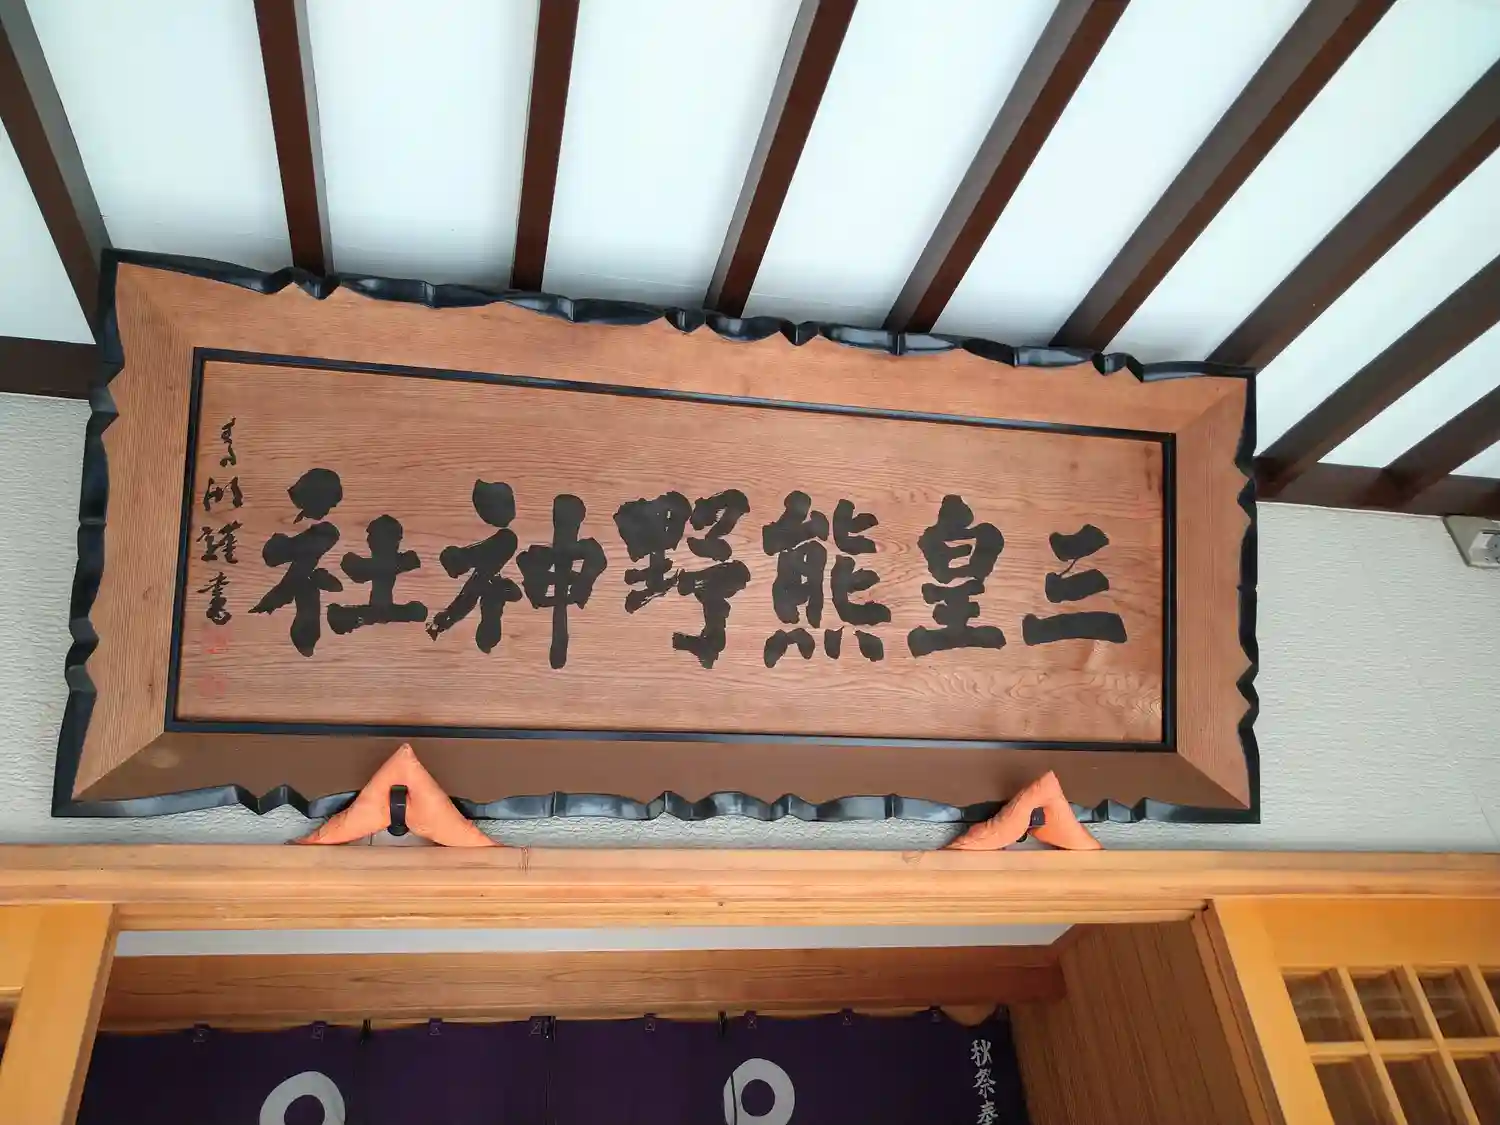 三皇熊野神社
謹書
秋祭奉